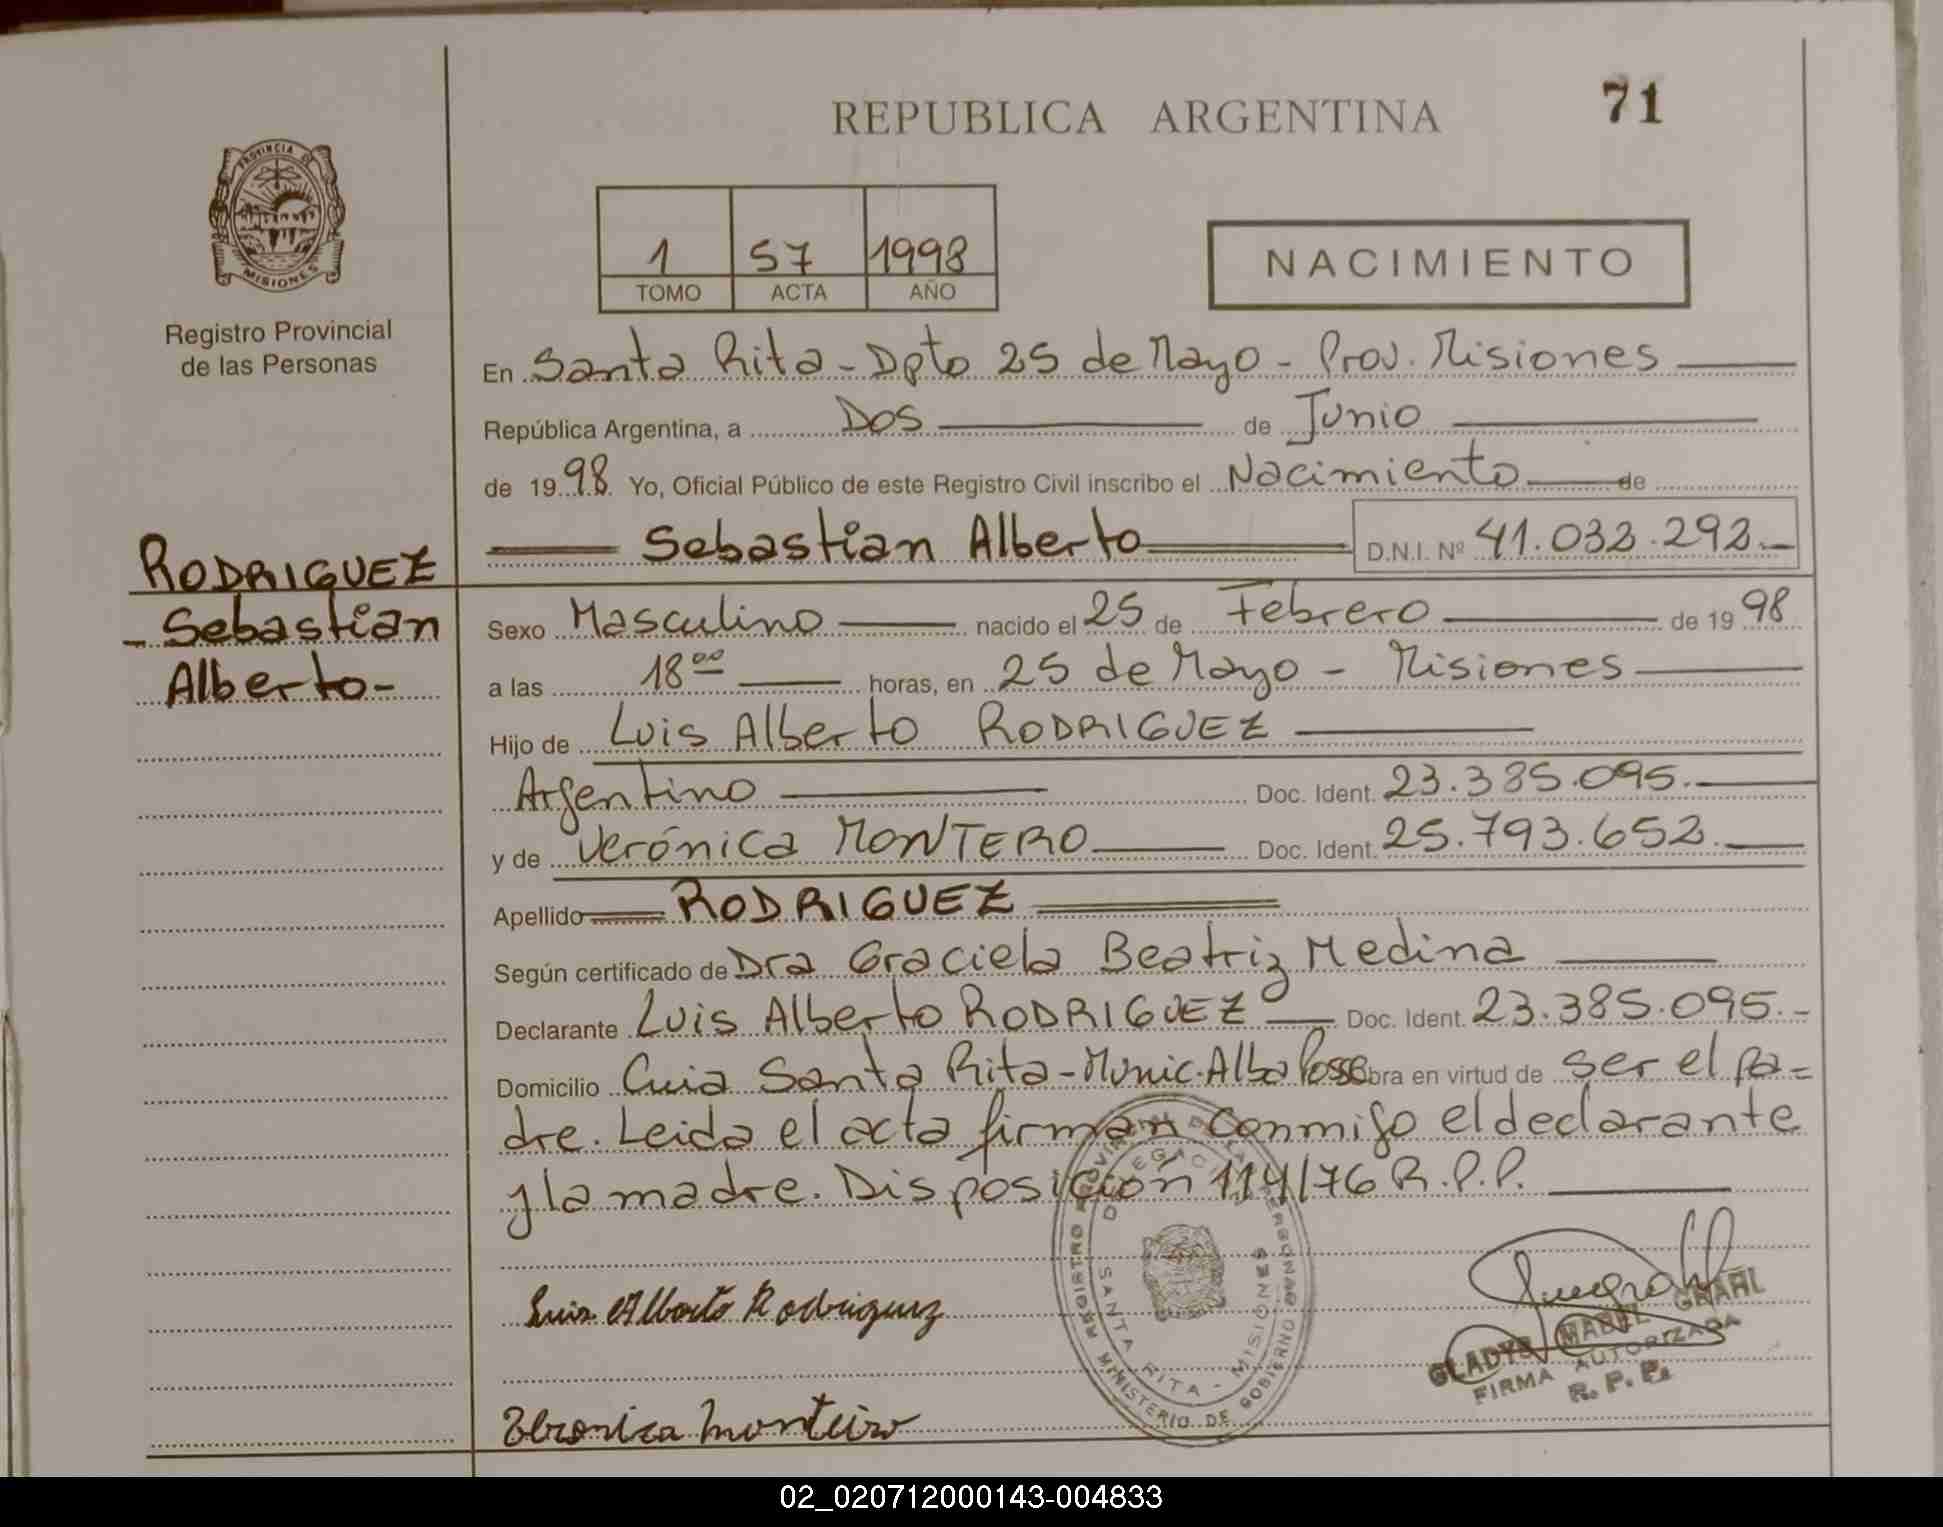 REPUBLICA ARGENTINA
71
PROVINCIA DE
MISIONES
Registro Provincial
de las Personas
1 57 1998
TOMO ACTA AÑO
NACIMIENTO
En Santa Rita - Dpto 25 de Mayo - Prov. Misiones
República Argentina, a Dos de Junio
de 1998 Yo, Oficial Público de este Registro Civil inscribo el Nacimiento de
Sebastian Alberto D.N.I. Nº 41.032.292.-
RODRIGUEZ
- Sebastian
Alberto-
Sexo Masculino nacido el 25 de Febrero de 1998
a las 18⁰⁰ horas, en 25 de Mayo - Misiones
Hijo de Luis Alberto RODRIGUEZ
Argentino Doc. Ident. 23.385.095.-
y de Verónica MONTERO Doc. Ident. 25.793.652.-
Apellido RODRIGUEZ
Según certificado de Dra Graciela Beatriz Medina
Declarante Luis Alberto RODRIGUEZ Doc. Ident. 23.385.095.-
Domicilio Cuia Santa Rita - Munic. Alba Posse obra en virtud de ser el pa=
dre. Leida el acta firman conmigo el declarante
y la madre. Disposición 114/76 R.P.P.
Luis Alberto Rodriguez
Veronica Monteiro
REGISTRO PROVINCIAL DE LAS PERSONAS
MINISTERIO DE GOBIERNO
DELEGACION
SANTA RITA - MISIONES
GLADYS MABEL GNAHL
FIRMA AUTORIZADA
R. P. P.
02_020712000143-004833